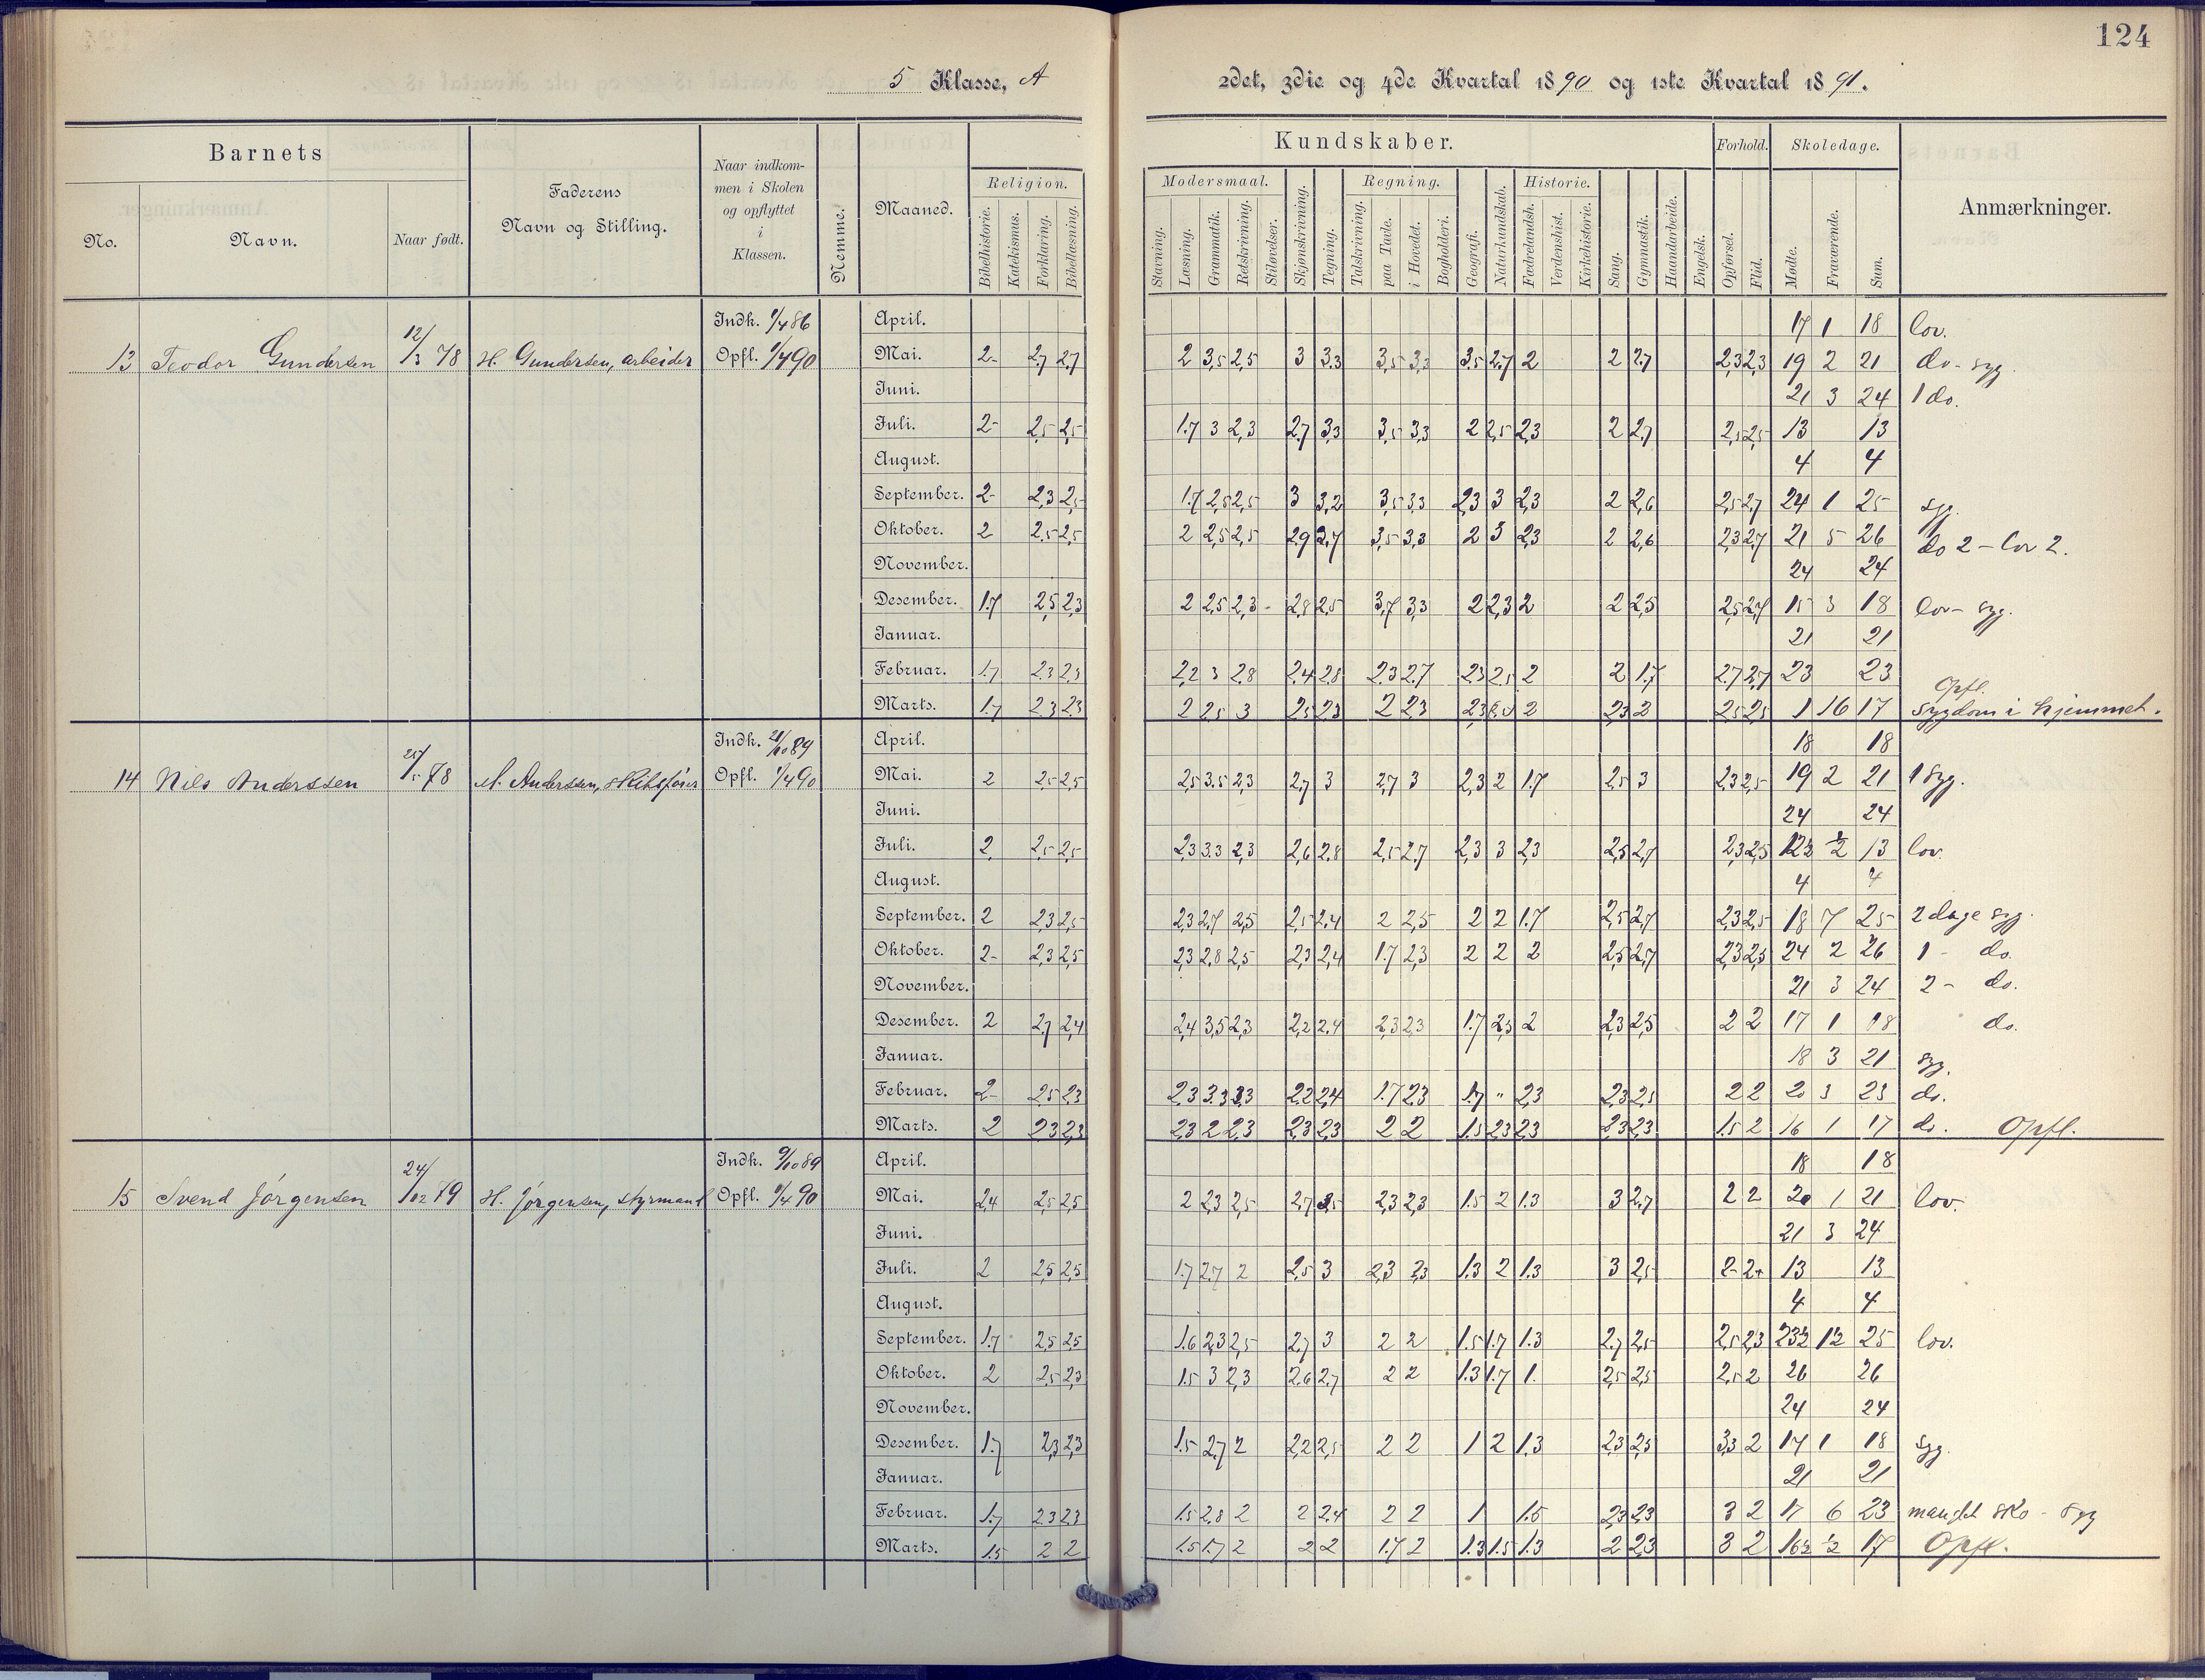 124
5 Klasse, A
2det, 3die og 4de Kvartal 1890 og 1ste Kvartal 1891.
Barnets
No.
Navn.
Naar født.
Faderens
Navn og Stilling.
Naar indkom-
men i Skolen
og opflyttet
i
Klassen.
Nemme.
Maaned.
Kundskaber.
Religion.
Bibelhistorie. Katekismus. Forklaring. Bibellæsning.
Modersmaal.
Stavning. Læsning. Grammatik. Retskrivning. Stiløvelser.
Skjønskrivning. Tegning.
Regning.
Talskrivning. paa Tavle. i Hovedet. Bogholderi.
Geografi. Naturkundskab.
Historie.
Fædrelandsh. Verdenshist. Kirkehistorie.
Sang. Gymnastik. Haandarbeide. Engelsk.
Forhold.
Opførsel. Flid.
Skoledage.
Mødte. Fraværende. Sum.
Anmærkninger.
13 Teodor Gundersen 12/3 78 H. Gundersen, arbeider
Indk. 1/4 86
Opfl. 1/4 90
April. 17 1 18 lov.
Mai. 2- 2,7 2,7 2 3,5 2,5 3 3.3 3,5 3,3 3.5 2,7 2 2 2.7 2,3 2,3 19 2 21 do - syg.
Juni. 21 3 24 1 do.
Juli. 2- 2,5 2,5 1.7 3 2,3 2.7 3,3 3,5 3,3 2 2,5 2,3 2 2,7 2,5 2,5 13 13
August. 4 4
September. 2- 2,3 2,5 1.7 2,5 2,5 3 3,2 3,5 3,3 2,3 3 2,3 2 2,6 2,5 2,7 24 1 25 syg.
Oktober. 2 2.5 2,5 2 2,5 2,5 2.9 2,7 3,5 3,3 2 3 2,3 2 2,6 2,3 2,7 21 5 26 do 2 - lov 2.
November. 24 24
Desember. 1.7 2,5 2,3 2 2,5 2,3 - 2,8 2,5 3,7 3,3 2 2,3 2 2 2,5 2,5 2,7 15 3 18 lov - syg.
Januar. 21 21
Februar. 1.7 2.3 2,3 2,2 3 2.8 2.4 2,8 2,3 2,7 2,3 2,5 2 2 1.7 2.7 2,7 23 23
Marts. 1.7 2.3 2,3 2 2,5 3 2,5 2,3 2 2,3 2,3 2 2,3 2 2,5 2,5 1 16 17 Opfl.
Sygdom i hjemmet.
14 Nils Anderssen 25/5 78 A. Anderssen, skibsfører
Indk. 21/10 89
Opfl. 1/4 90
April. 18 18
Mai. 2 2,5 2,5 2,5 3.5 2,3 2,7 3 2,7 3 2,3 2 1.7 2,5 3 2,3 2,5 19 2 21 1 syg.
Juni. 24 24
Juli. 2 2,5 2,5 2,3 3.3 2,3 2,6 2,8 2,5 2,7 2,3 3 2,3 2,5 2,7 2,3 2,5 12½ ½ 13 lov.
August. 4 4
September. 2 2,3 2,5 2,3 2,7 2,5 2,5 2,4 2 2,5 2 2 1.7 2,5 2,7 2,3 2,5 18 7 25 2 dage syg.
Oktober. 2- 2,3 2,5 2,3 2,8 2,5 2,3 2,4 1.7 2,3 2 2 2 2,5 2,7 2,3 2,5 24 2 26 1 - do.
November. 21 3 24 2 - do.
Desember. 2 2,7 2,4 2,4 3,5 2,3 2,2 2,4 2,3 2,3 1.7 2,3 2 2,3 2,5 2 2 17 1 18 do.
Januar. 18 3 21 syg.
Februar. 2- 2,5 2,3 2,3 3.3 2,3 2,2 2,4 1.7 2,3 1.7 " 2,3 2,3 2,5 2 2 20 3 23 do.
Marts. 2 2,3 2,3 2,3 2 2,3 2,3 2,3 2 2 1.5 2,3 2,3 2,3 2,3 1.5 2 16 1 17 do. Opfl.
15 Svend Jørgensen 24/12 79 H. Jørgensen, styrmand
Indk. 9/10 89
Opfl. 1/4 90
April. 18 18
Mai. 2,4 2,5 2,5 2 2,3 2,5 2,7 2,5 2,3 2,3 1.5 2 1.3 3 2,7 2 2 20 1 21 lov.
Juni. 21 3 24
Juli. 2 2,5 2,5 1.7 2,7 2 2,5 3 2,3 2,3 1.3 2 1.3 3 2,5 2- 2+ 13 13
August. 4 4
September. 1.7 2,5 2,5 1.6 2,3 2,5 2,7 3 2 2 1.5 1.7 1.3 2,7 2,5 2,5 2,3 23½ 1½ 25 lov.
Oktober. 2 2,5 2,3 1.5 3 2,3 2,6 2,7 2 2 1.3 1.7 1. 2,5 2,5 2,5 2 26 26
November. 24 24
Desember. 1.7 2,3 2,3 1.5 2,7 2 2,2 2,5 2 2 1 2 1.3 2,3 2,5 3,3 2 17 1 18 syg.
Januar. 21 21
Februar. 1.7 2.3 2,3 1.5 2,8 2 2 2.4 2 2 1 1.5 2,3 2,3 3 2 17 6 23 manglet sko - syg
Marts. 1.5 2 2 1.5 1.7 2 2 2 1.7 2 1.3 1.5 1.3 2 2,3 3 2 16½ ½ 17 Opfl.